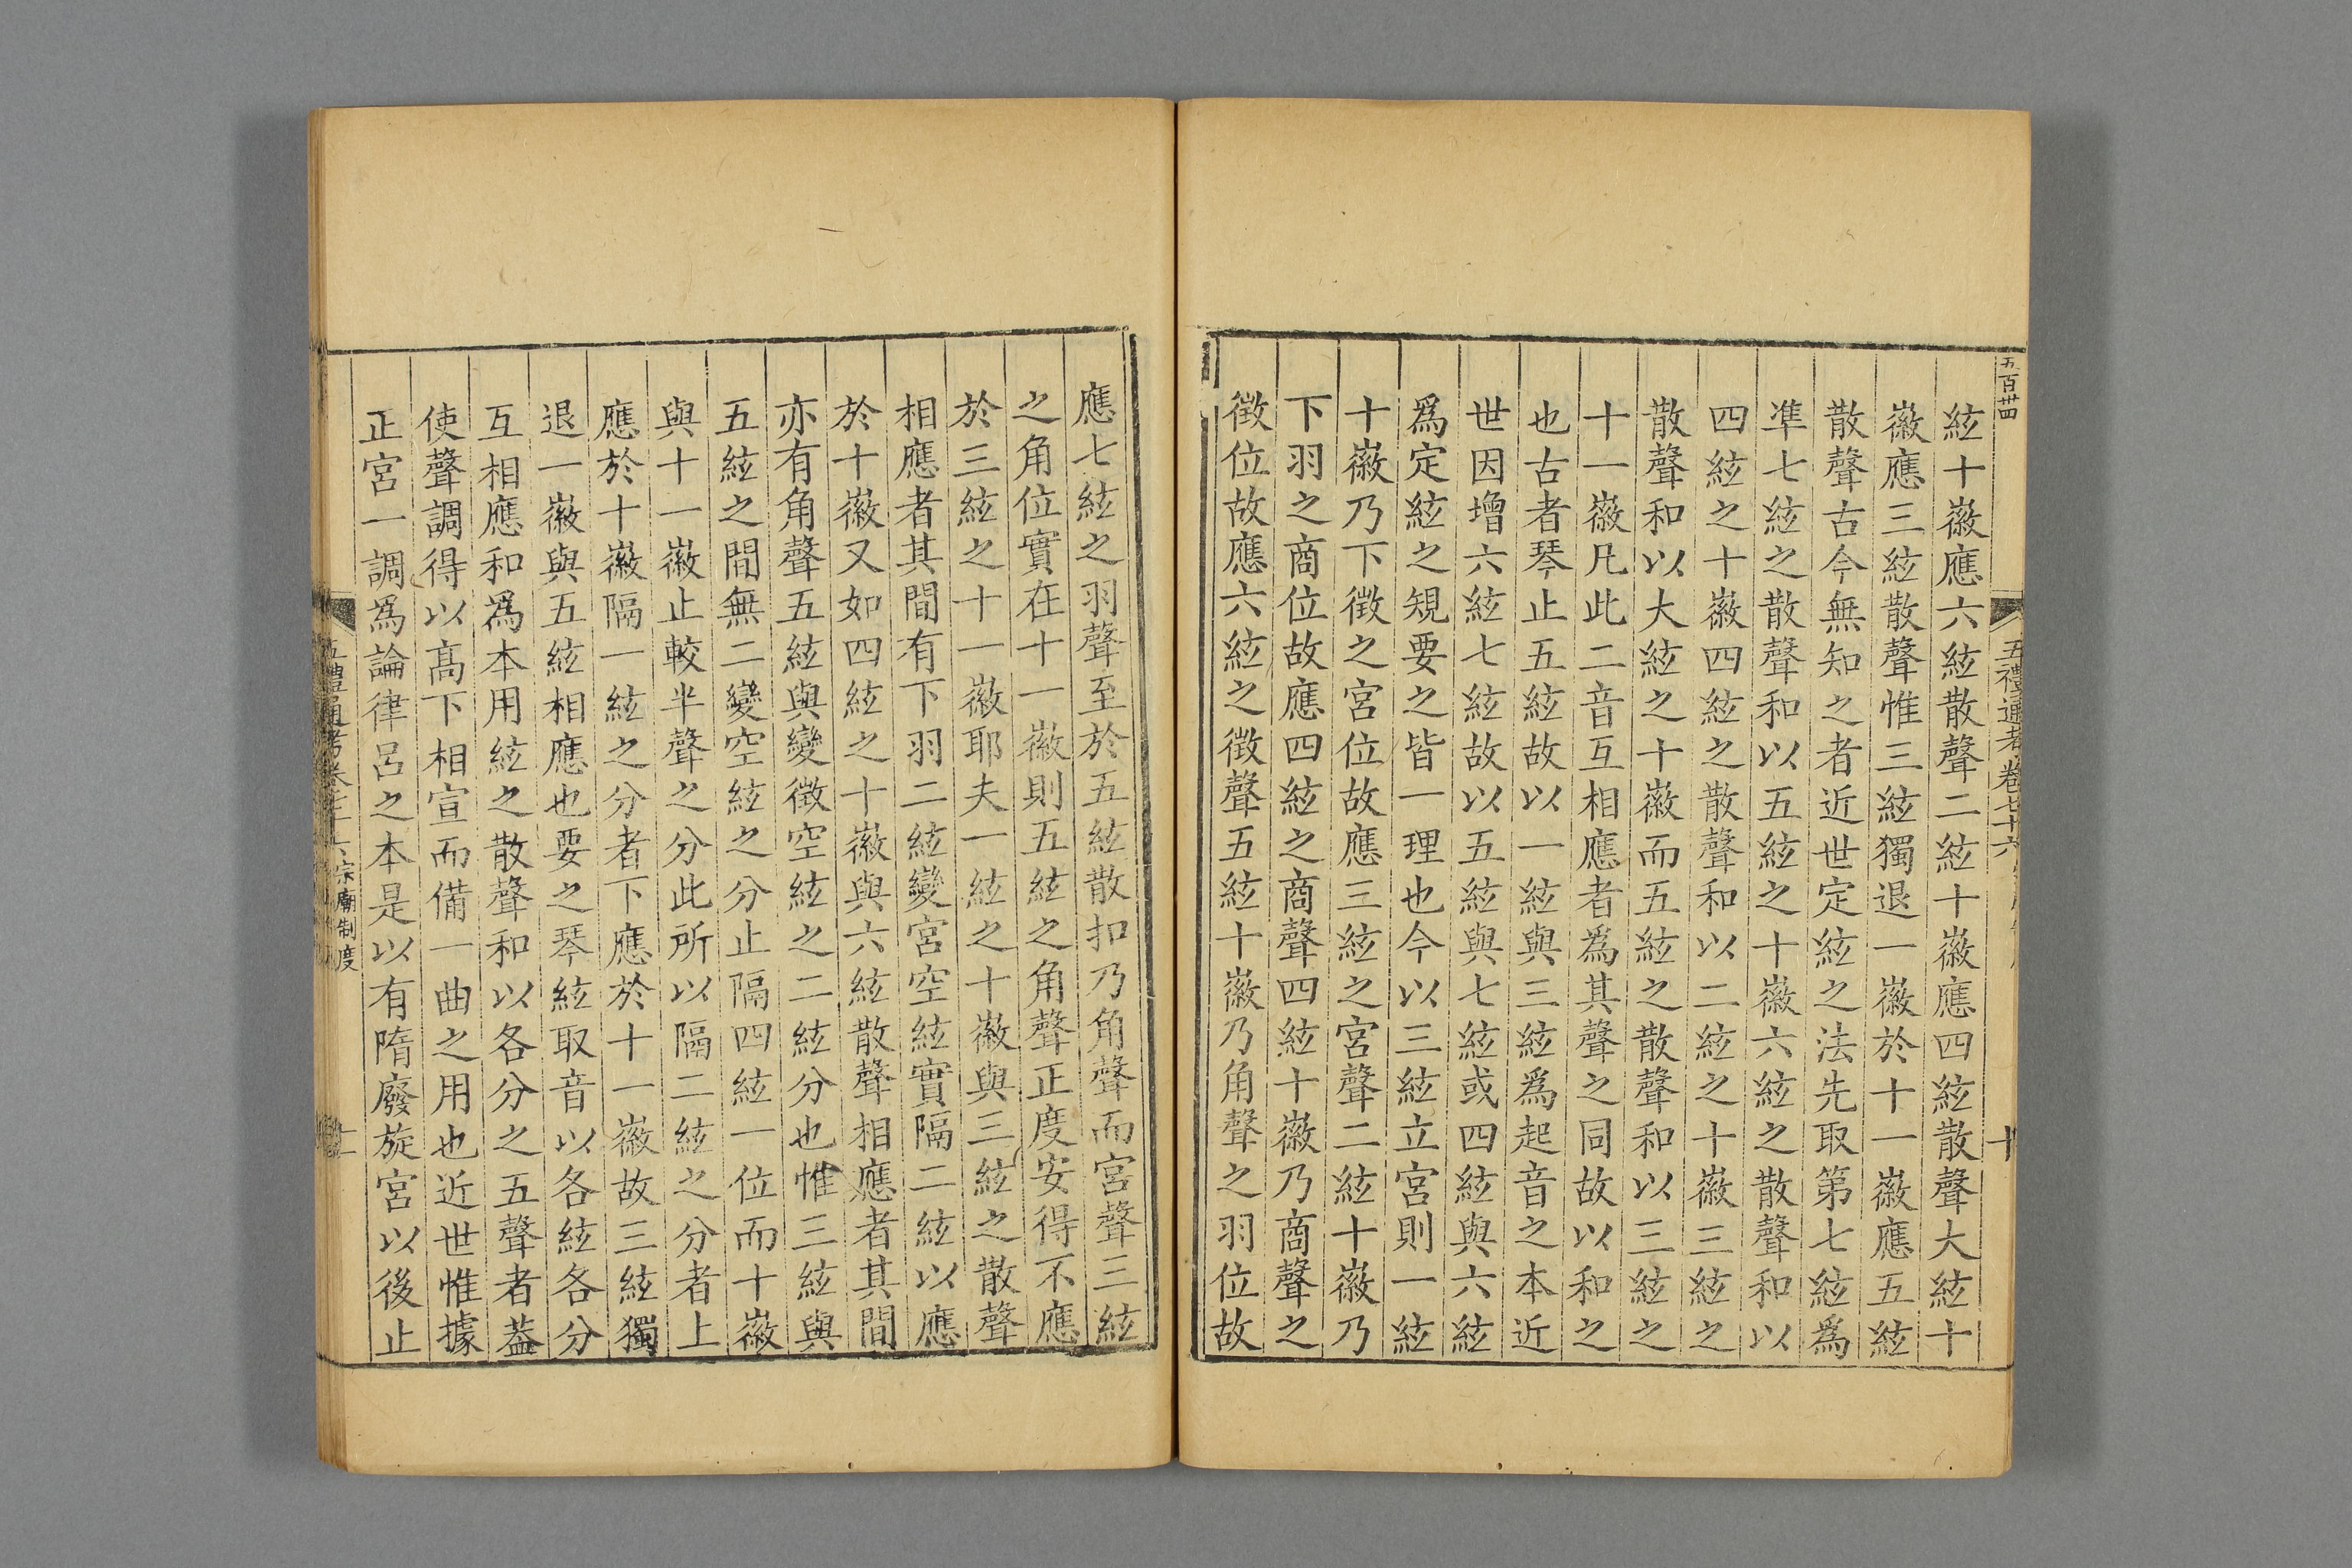 五百卌
五禮通考卷七十六
十
絃十徽應六絃散聲二絃十徽應四絃散聲大絃十
徽應三絃散聲惟三絃獨退一徽於十一徽應五絃
散聲古今無知之者近世定絃之法先取第七絃爲
凖七絃之散聲和以五絃之十徽六絃之散聲和以
四絃之十徽四絃之散聲和以二絃之十徽三絃之
散聲和以大絃之十徽而五絃之散聲和以三絃之
十一徽凡此二音互相應者爲其聲之同故以和之
也古者琴止五絃故以一絃與三絃爲起音之本近
世因增六絃七絃故以五絃與七絃或四絃與六絃
爲定絃之規要之皆一理也今以三絃立宮則一絃
十徽乃下徵之宮位故應三絃之宮聲二絃十徽乃
下羽之商位故應四絃之商聲四絃十徽乃商聲之
徵位故應六絃之徵聲五絃十徽乃角聲之羽位故
應七絃之羽聲至於五絃散扣乃角聲而宮聲三絃
之角位實在十一徽則五絃之角聲正度安得不應
於三絃之十一徽耶夫一絃之十徽與三絃之散聲
相應者其間有下羽二絃變宮空絃實隔二絃以應
於十徽又如四絃之十徽與六絃散聲相應者其間
亦有角聲五絃與變徵空絃之二絃分也惟三絃與
五絃之間無二變空絃之分止隔四絃一位而十徽
與十一徽止較半聲之分此所以隔二絃之分者上
應於十徽隔一絃之分者下應於十一徽故三絃獨
退一徽與五絃相應也要之琴絃取音以各絃各分
互相應和爲本用絃之散聲和以各分之五聲者葢
使聲調得以高下相宣而備一曲之用也近世惟據
正宮一調爲論律呂之本是以有隋廢旋宮以後止
五禮通考卷七十六 宗廟制度